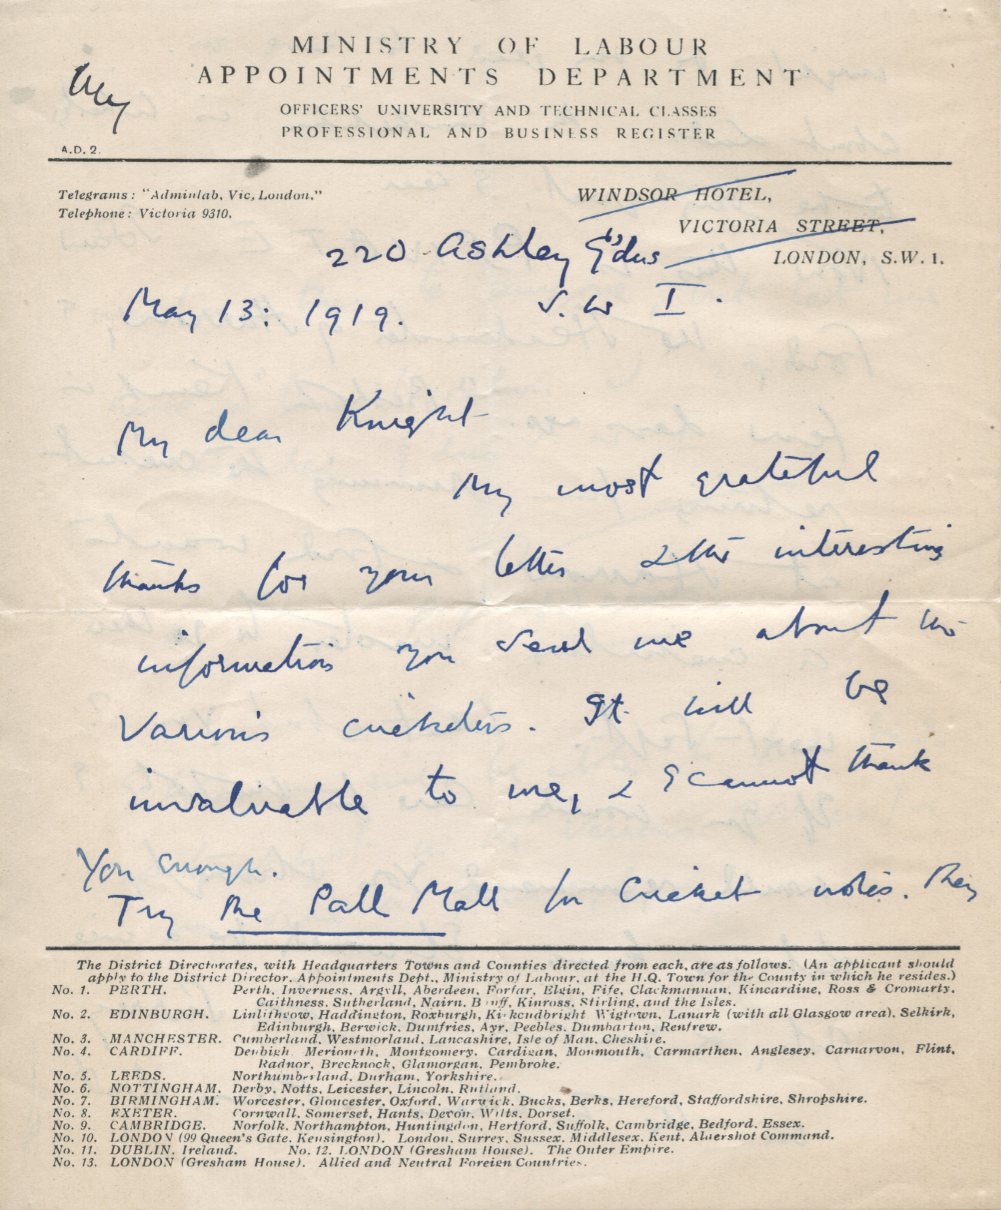 MINISTRY OF LABOUR
APPOINTMENTS DEPARTMENT
OFFICERS' UNIVERSITY AND TECHNICAL CLASSES
PROFESSIONAL AND BUSINESS REGISTER
A.D. 2.
Telegrams: "Adminlab, Vic, London."
Telephone: Victoria 9310.
WINDSOR HOTEL,
VICTORIA STREET,
LONDON, S.W. 1.
220 Ashley Gdns
S. W I.
May 13: 1919.
My dear Knight
My most grateful
thanks for your letter & the interesting
information you send me about the
various cricketers. It will be
invaluable to me, & I cannot thank
you enough.
Try the Pall Mall for Cricket notes. They
The District Directorates, with Headquarters Towns and Counties directed from each, are as follows. (An applicant should
apply to the District Director, Appointments Dept., Ministry of Labour, at the H.Q. Town for the County in which he resides.)
No. 1. PERTH. Perth, Inverness, Argyll, Aberdeen, Forfar, Elgin, Fife, Clackmannan, Kincardine, Ross & Cromarty,
Caithness, Sutherland, Nairn, Banff, Kinross, Stirling, and the Isles.
No. 2. EDINBURGH. Linlithgow, Haddington, Roxburgh, Kirkcudbright Wigtown, Lanark (with all Glasgow area), Selkirk,
Edinburgh, Berwick, Dumfries, Ayr, Peebles, Dumbarton, Renfrew.
No. 3. MANCHESTER. Cumberland, Westmorland, Lancashire, Isle of Man, Cheshire.
No. 4. CARDIFF. Denbigh, Merioneth, Montgomery, Cardigan, Monmouth, Carmarthen, Anglesey, Carnarvon, Flint,
Radnor, Brecknock, Glamorgan, Pembroke.
No. 5. LEEDS. Northumberland, Durham, Yorkshire.
No. 6. NOTTINGHAM. Derby, Notts, Leicester, Lincoln, Rutland.
No. 7. BIRMINGHAM. Worcester, Gloucester, Oxford, Warwick, Bucks, Berks, Hereford, Staffordshire, Shropshire.
No. 8. EXETER. Cornwall, Somerset, Hants, Devon, Wilts, Dorset.
No. 9. CAMBRIDGE. Norfolk, Northampton, Huntingdon, Hertford, Suffolk, Cambridge, Bedford, Essex.
No. 10. LONDON (99 Queen's Gate, Kensington). London, Surrey, Sussex, Middlesex, Kent, Aldershot Command.
No. 11. DUBLIN. Ireland. No. 12. LONDON (Gresham House). The Outer Empire.
No. 13. LONDON (Gresham House). Allied and Neutral Foreign Countries.